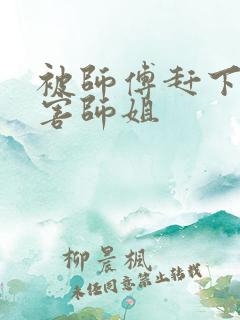 被師傅赶下
害師姐
柳晨楓
未经同意禁止转载